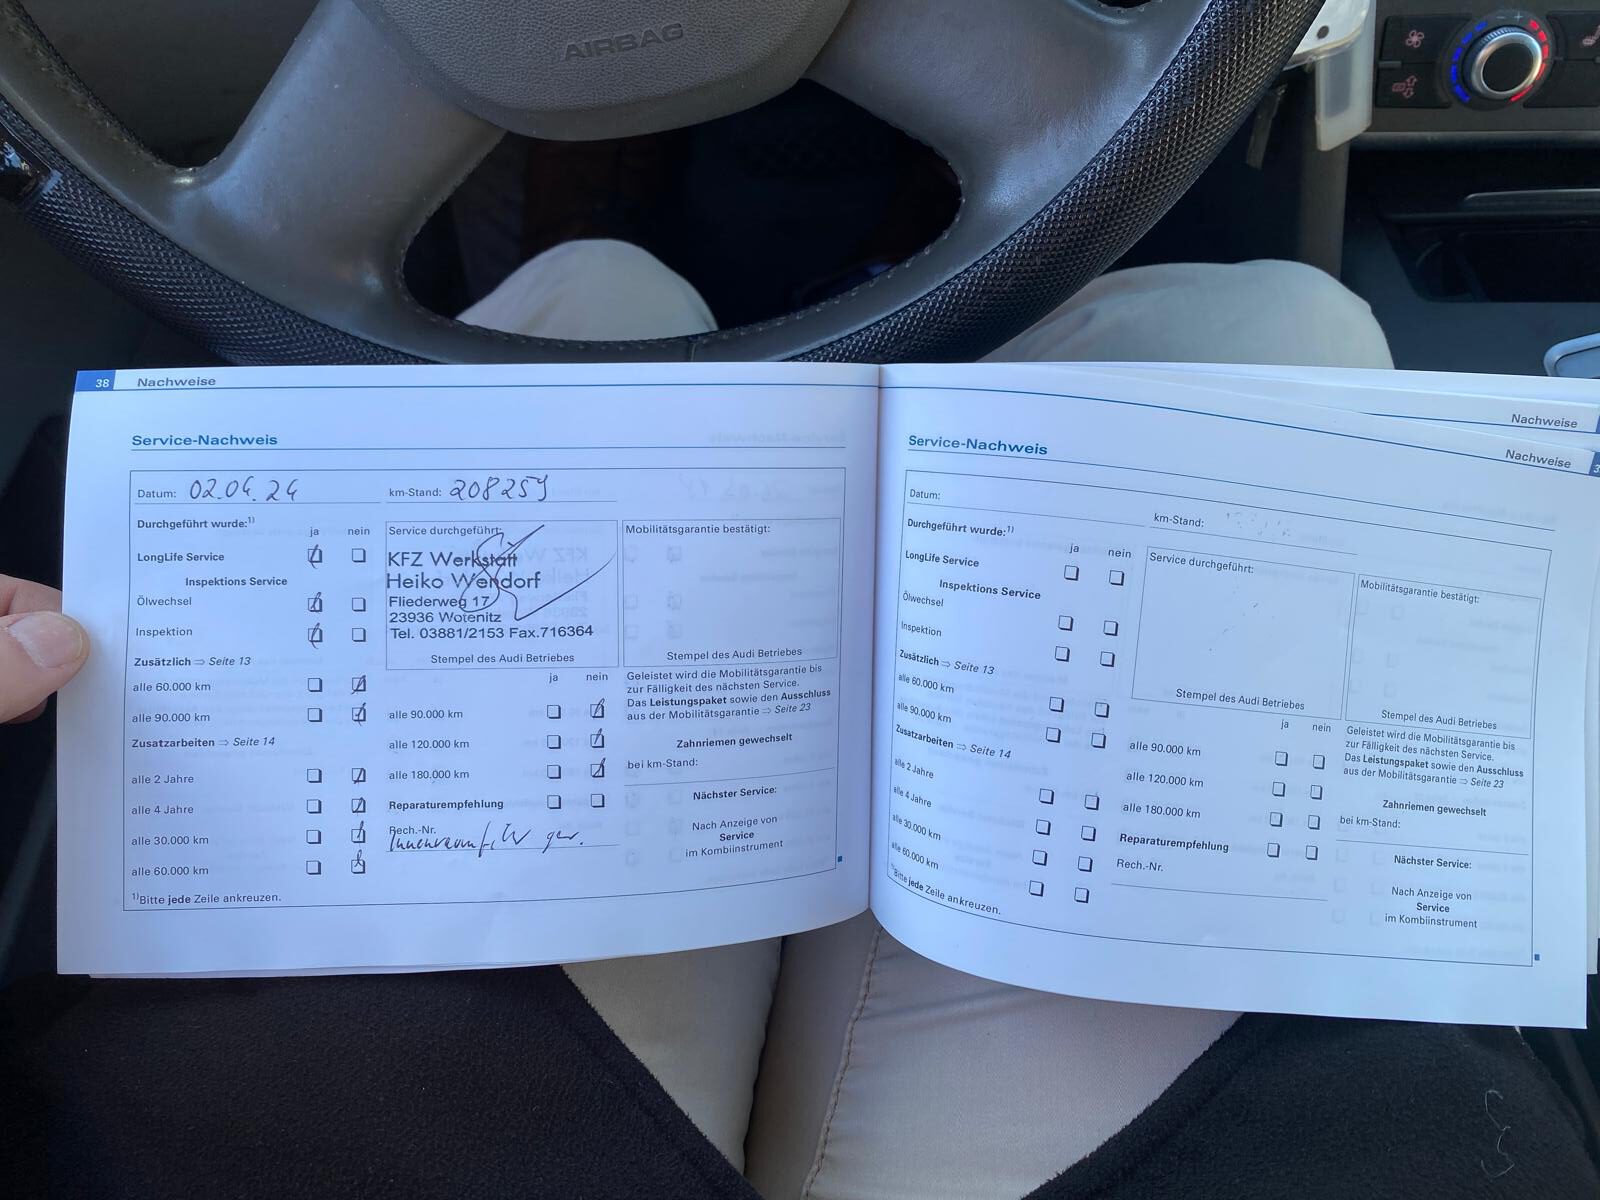 AIRBAG
38 Nachweise
Service-Nachweis
Datum: 02.04.24 km-Stand: 208259
Durchgeführt wurde:1)
ja nein
LongLife Service
Inspektions Service
Ölwechsel
Inspektion
Zusätzlich ⇒ Seite 13
alle 60.000 km
alle 90.000 km
Zusatzarbeiten ⇒ Seite 14
alle 2 Jahre
alle 4 Jahre
alle 30.000 km
alle 60.000 km
1)Bitte jede Zeile ankreuzen.
Service durchgeführt:
KFZ Werkstatt
Heiko Wendorf
Fliederweg 17
23936 Wotenitz
Tel. 03881/2153 Fax.716364
Stempel des Audi Betriebes
ja nein
alle 90.000 km
alle 120.000 km
alle 180.000 km
Reparaturempfehlung
Rech.-Nr.
Innenraumf. gew.
Mobilitätsgarantie bestätigt:
Stempel des Audi Betriebes
Geleistet wird die Mobilitätsgarantie bis
zur Fälligkeit des nächsten Service.
Das Leistungspaket sowie den Ausschluss
aus der Mobilitätsgarantie ⇒ Seite 23
Zahnriemen gewechselt
bei km-Stand:
Nächster Service:
Nach Anzeige von
Service
im Kombiinstrument
Nachweise
Nachweise 3
Service-Nachweis
Datum:
km-Stand:
Durchgeführt wurde:1)
ja nein
LongLife Service
Inspektions Service
Ölwechsel
Inspektion
Zusätzlich ⇒ Seite 13
alle 60.000 km
alle 90.000 km
Zusatzarbeiten ⇒ Seite 14
alle 2 Jahre
alle 4 Jahre
alle 30.000 km
alle 60.000 km
1)Bitte jede Zeile ankreuzen.
Service durchgeführt:
Stempel des Audi Betriebes
ja nein
alle 90.000 km
alle 120.000 km
alle 180.000 km
Reparaturempfehlung
Rech.-Nr.
Mobilitätsgarantie bestätigt:
Stempel des Audi Betriebes
Geleistet wird die Mobilitätsgarantie bis
zur Fälligkeit des nächsten Service.
Das Leistungspaket sowie den Ausschluss
aus der Mobilitätsgarantie ⇒ Seite 23
Zahnriemen gewechselt
bei km-Stand:
Nächster Service:
Nach Anzeige von
Service
im Kombiinstrument